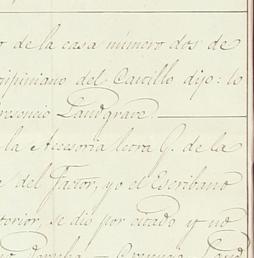 o de la casa número dos de
rispiniano del Castillo dijo: lo
resencio Landgrave.
la Accesoria letra G. de la
del Factor, yo el Escribano
terior, se dio por citado y no